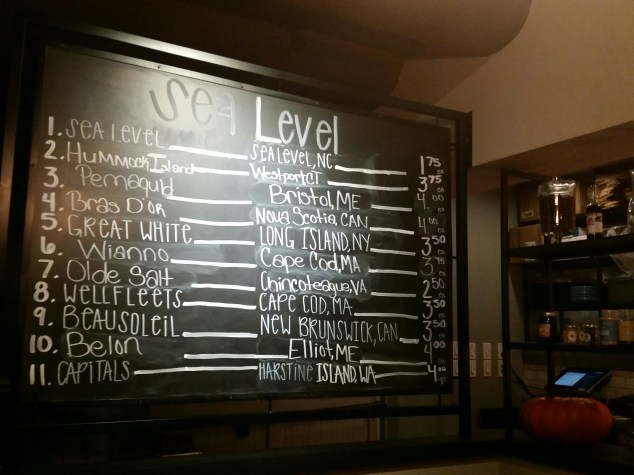 Sea Level
1. SEA LEVEL SEA LEVEL, NC 1 75
2. Hummock Island Westport CT 3 75
3. Pemaquid Bristol, ME 4 00
4. Bras D'or Nova Scotia, CAN 4 00
5. GREAT WHITE LONG ISLAND, NY 3 50
6. Wianno Cape Cod, MA 3 75
7. Olde Salt Chincoteague, VA 2 50
8. WELLFLEETS CAPE COD, MA 3 50
9. BEAUSOLEIL NEW BRUNSWICK, CAN 3 50
10. Belon Elliot, ME 4
11. CAPITALS HARSTINE ISLAND, WA 4 00